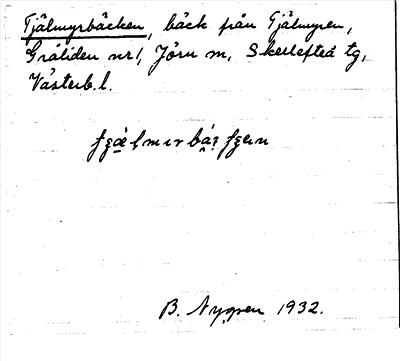 Tjälmyrbäcken, bäck från Tjälmyren,
Gråliden nr 1, Jörn sn, Skellefteå tg,
Västerb. l.
B. Nygren 1932.